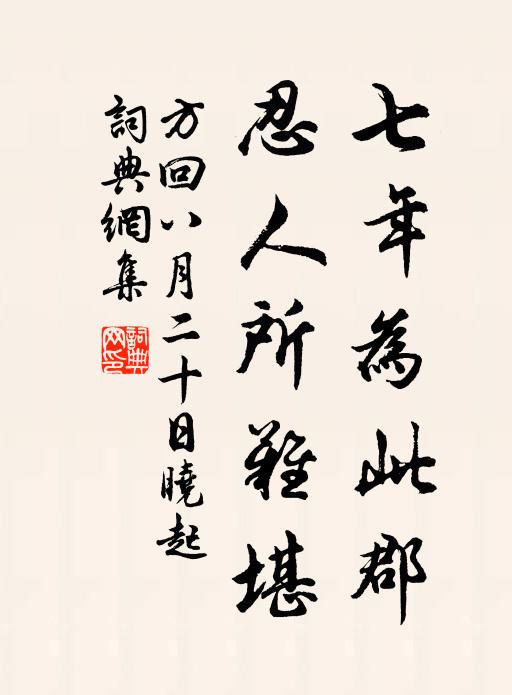 七年為此郡
忍人所難堪
方回八月二十日曉起
詞典網集
詞典網印